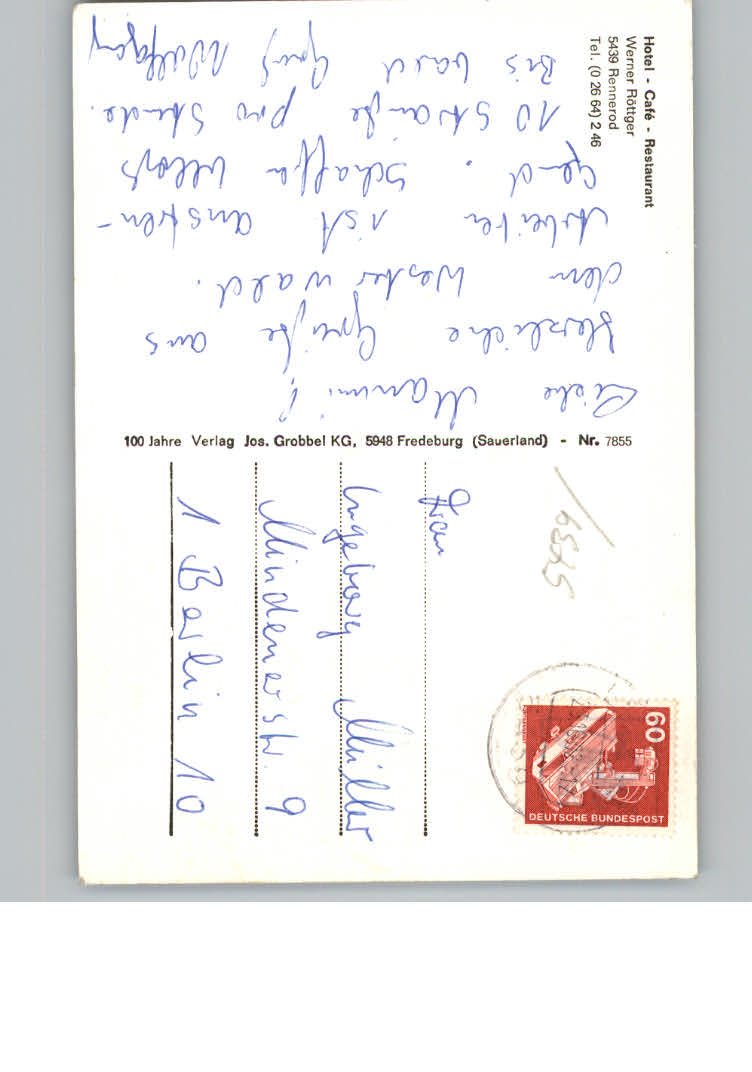 Hotel - Café - Restaurant
Werner Röttger
5439 Rennerod
Tel. (0 26 64) 2 46
Liebe Mammi!
Herzliche Grüße aus
dem Westerwald.
Arbeiten ist anstren-
gend. Schaffe
10 Stämme pro Stunde.
Bis bald Gruß Wolfgang
100 Jahre Verlag Jos. Grobbel KG, 5948 Fredeburg (Sauerland) - Nr. 7855
Frau
Ingeborg Müller
Mindenerstr. 9
1 Berlin 10
60
DEUTSCHE BUNDESPOST